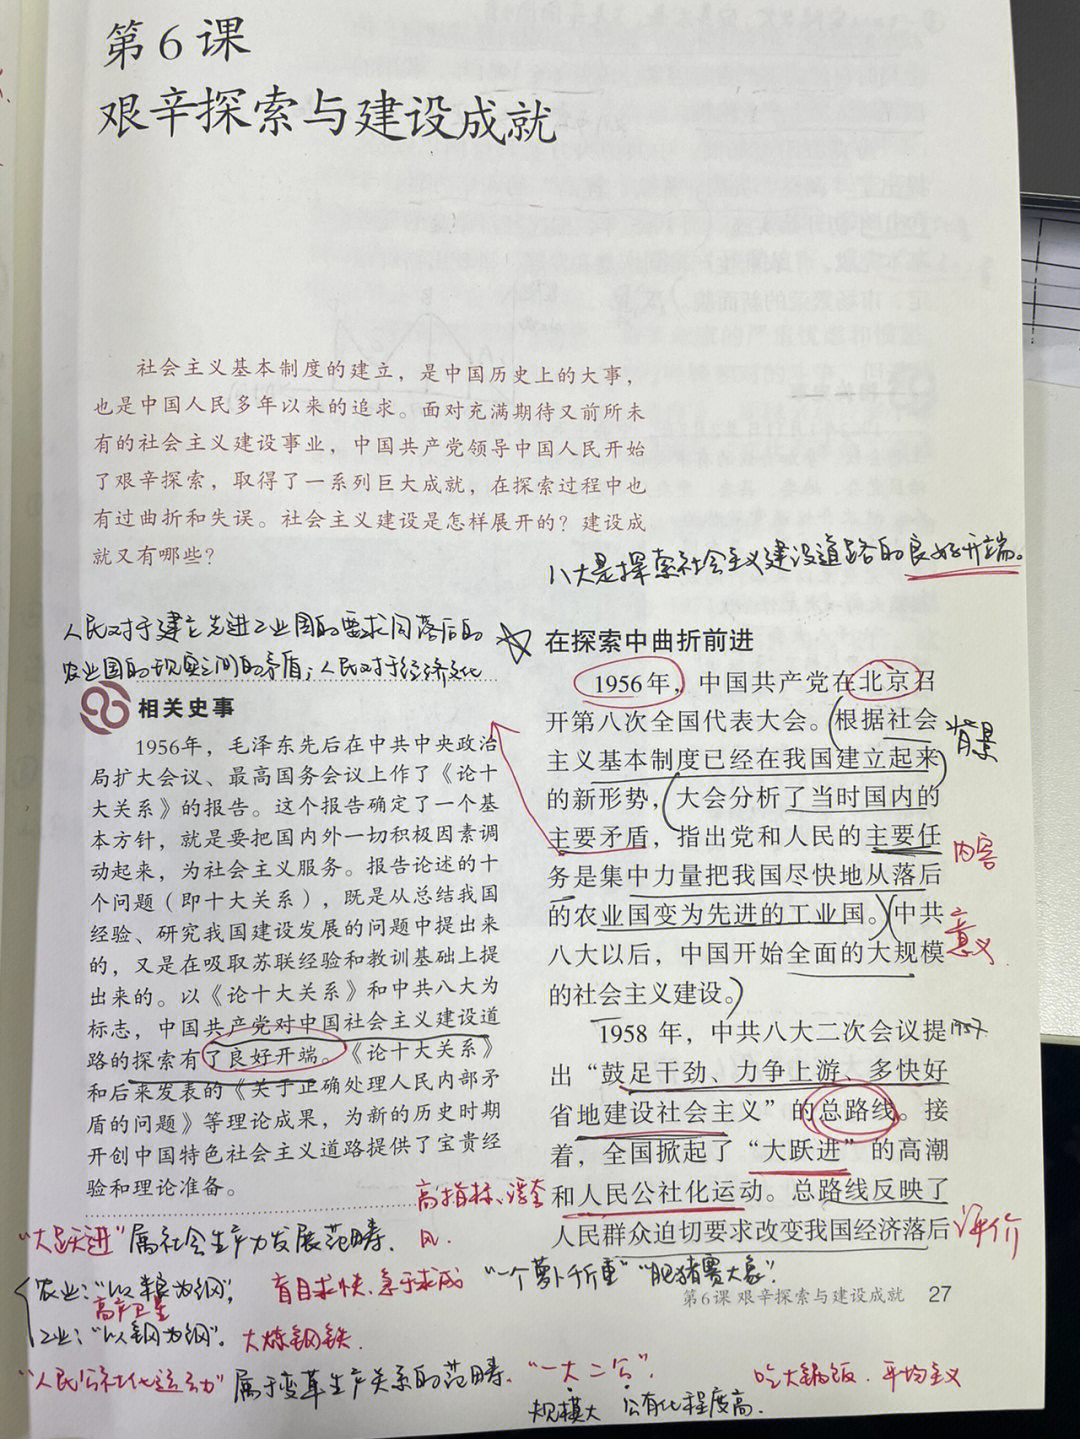 第6课
艰辛探索与建设成就
社会主义基本制度的建立，是中国历史上的大事，
也是中国人民多年以来的追求。面对充满期待又前所未
有的社会主义建设事业，中国共产党领导中国人民开始
了艰辛探索，取得了一系列巨大成就，在探索过程中也
有过曲折和失误。社会主义建设是怎样展开的？建设成
就又有哪些？
八大是探索社会主义建设道路的良好开端。
人民对于建立先进工业国的要求同落后的
农业国的现实之间的矛盾；人民对于经济文化
相关史事
1956年，毛泽东先后在中共中央政治
局扩大会议、最高国务会议上作了《论十
大关系》的报告。这个报告确定了一个基
本方针，就是要把国内外一切积极因素调
动起来，为社会主义服务。报告论述的十
个问题（即十大关系），既是从总结我国
经验、研究我国建设发展的问题中提出来
的，又是在吸取苏联经验和教训基础上提
出来的。以《论十大关系》和中共八大为
标志，中国共产党对中国社会主义建设道
路的探索有了良好开端。《论十大关系》
和后来发表的《关于正确处理人民内部矛
盾的问题》等理论成果，为新的历史时期
开创中国特色社会主义道路提供了宝贵经
验和理论准备。
在探索中曲折前进
1956年，中国共产党在北京召
开第八次全国代表大会。根据社会
主义基本制度已经在我国建立起来
的新形势，大会分析了当时国内的
主要矛盾，指出党和人民的主要任
务是集中力量把我国尽快地从落后
的农业国变为先进的工业国。中共
八大以后，中国开始全面的大规模
的社会主义建设。
背景
内容
意义
1958年，中共八大二次会议提
出“鼓足干劲、力争上游、多快好
省地建设社会主义”的总路线。接
着，全国掀起了“大跃进”的高潮
和人民公社化运动。总路线反映了
人民群众迫切要求改变我国经济落后
1957
评价
高指标、浮夸
风.
“大跃进”属社会生产力发展范畴、
农业：“以粮为纲”， 盲目求快、急于求成 “一个萝卜千斤重”“肥猪赛大象”.
高产卫星
工业：“以钢为纲”。大炼钢铁.
第6课 艰辛探索与建设成就 27
“人民公社化运动”属于变革生产关系的范畴. “一大二公”. 吃大锅饭. 平均主义
规模大 公有化程度高.